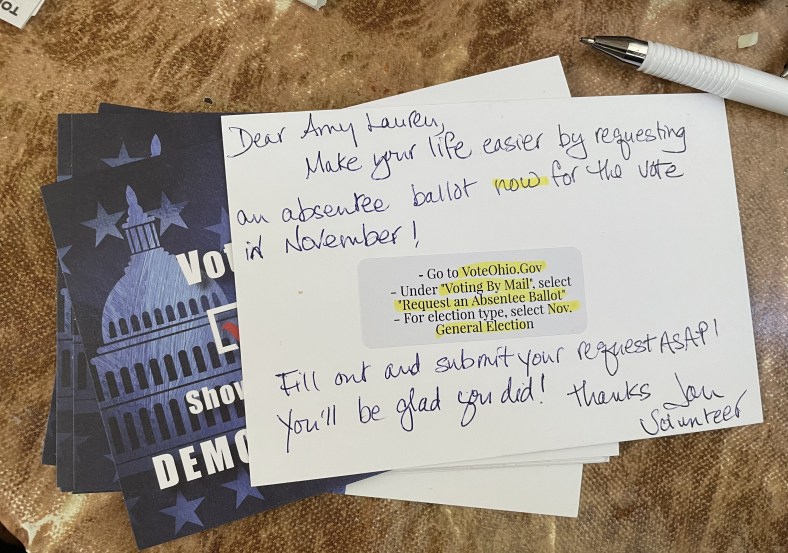 Dear Amy Lauren,
Make your life easier by requesting
an absentee ballot now for the vote
in November!
- Go to VoteOhio.Gov
- Under "Voting By Mail", select
"Request an Absentee Ballot"
- For election type, select Nov.
General Election
Fill out and submit your request ASAP!
You'll be glad you did! Thanks Jan
Volunteer
Vot
Show
DEMO